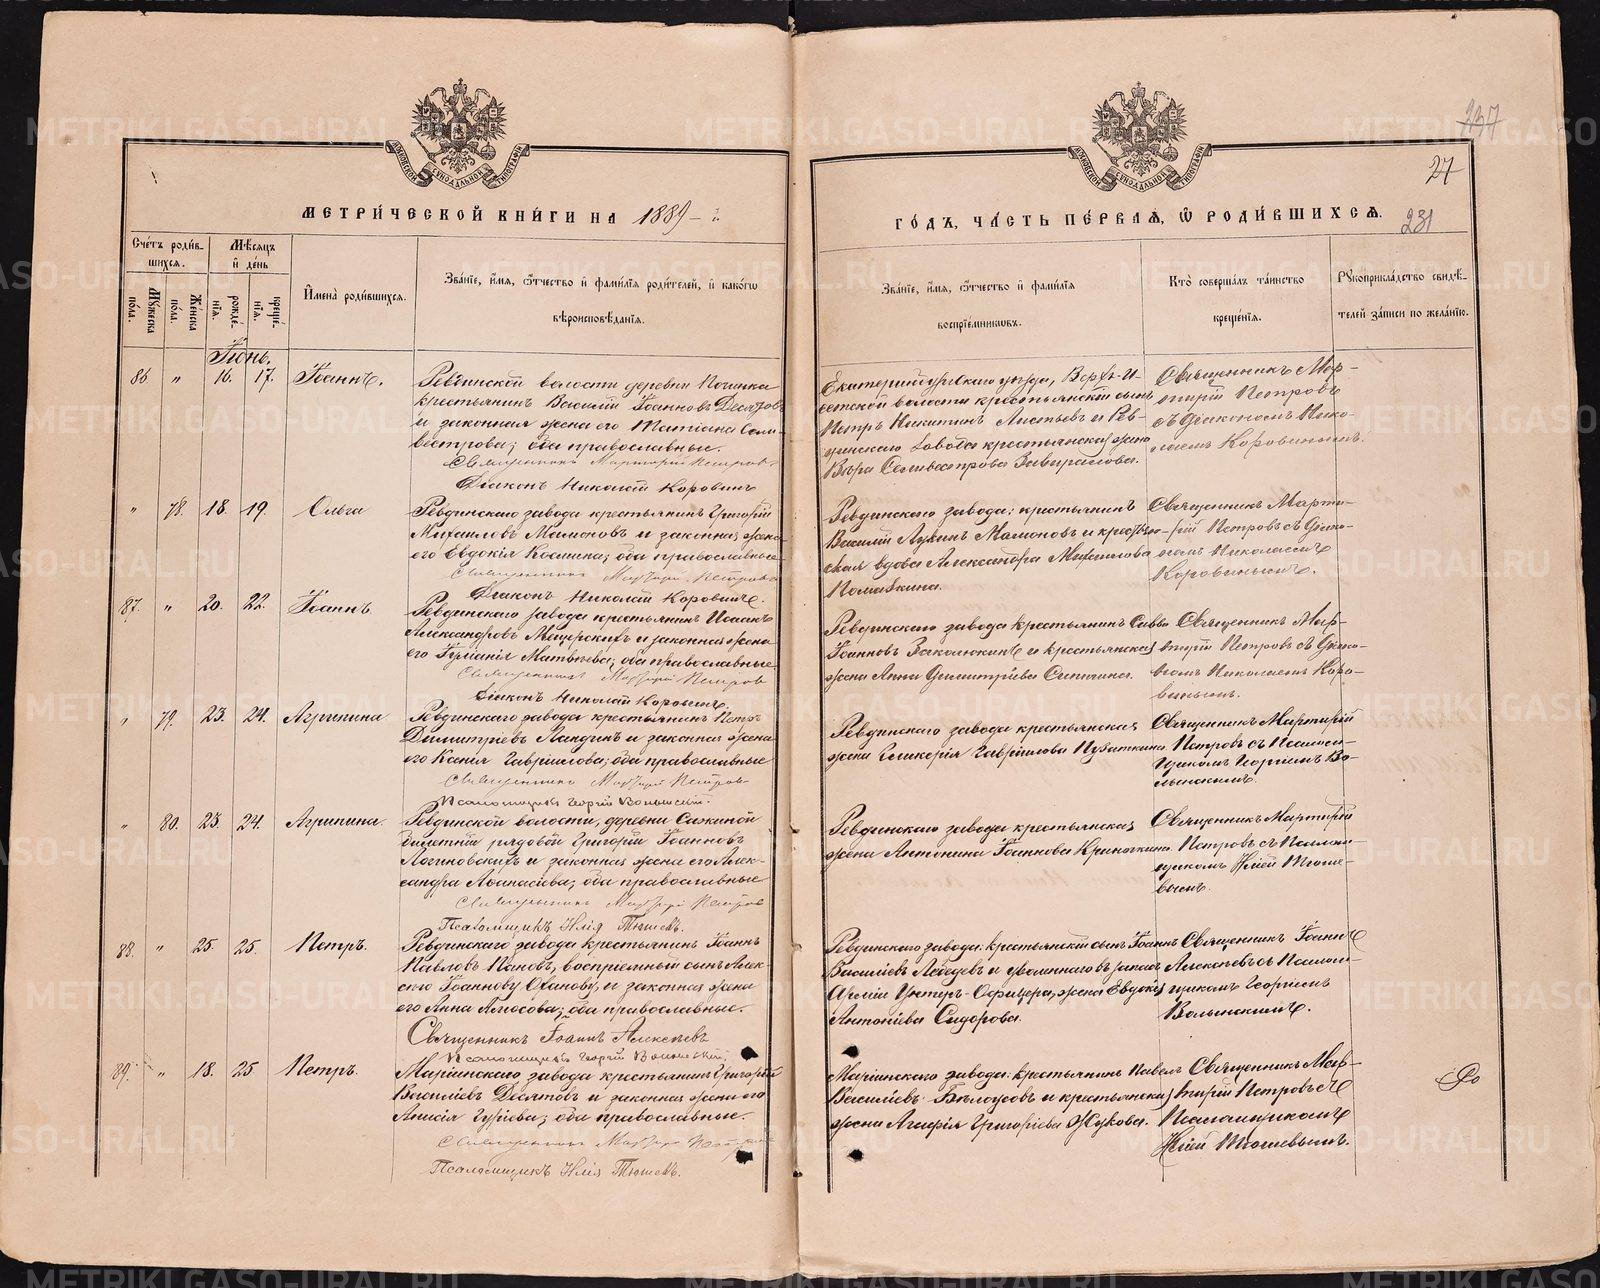 337
27
МЕТРИ́ЧЕСКОЙ КНИ́ГИ НА 1889-й
ГО́ДЪ, ЧА́СТЬ ПЕ́РВАѦ, Ѽ РОДИ́ВШИХСѦ. 231
Сче́тъ роди́в-
шихсѧ.
Мѣ́сѧцъ
и҆ де́нь
Мꙋжеска
по́ла.
Же́нска
по́ла.
рожде́-
нїѧ.
креще́-
нїѧ.
И҆мена̀ роди́вшихсѧ.
Зва́нїе, и҆́мѧ, ѻ҆́тчество и҆ фами́лїѧ роди́телей, и҆ како́гѡ
вѣроисповѣ́данїѧ.
Зва́нїе, и҆́мѧ, ѻ҆́тчество и҆ фами́лїѧ
воспрїе́мникѡвъ.
Кто̀ соверша́лъ та́инство
креще́нїѧ.
Рꙋкоприкла́дство свидѣ́-
телей за́писи по жела́нїю.
Іюнь.
86 " 16. 17. Іоаннъ.
Ревдинской волости деревни Починка
крестьянинъ Василій Іоанновъ Десятовъ
и законная жена его Татіана Сели-
вестрова; оба православные.
Священникъ Мартирій Петровъ
Діаконъ Николай Коровинъ
Екатеринбургскаго уѣзда, Верхъ-И-
сетской волости крестьянскій сынъ
Петръ Никитинъ Листьевъ и Рев-
динскаго завода крестьянская жена
Вѣра Селивестрова
Священникъ Мар-
тирій Петровъ
съ діакономъ Нико-
лаемъ Коровинымъ.
" 78. 18. 19. Ольга
Ревдинскаго завода крестьянинъ Григорій
Михаиловъ Мамоновъ и законная жена
его Евдокія Козмина; оба православные
Священникъ Мартирій Петровъ
Діаконъ Николай Коровинъ.
Ревдинскаго завода: крестьянинъ
Василій Лукинъ Мамоновъ и крестьян-
ская вдова Александра Михаилова
Священникъ Марти-
рій Петровъ съ діако-
номъ Николаемъ
Коровинымъ.
87. " 20. 22. Іоаннъ
Ревдинскаго завода крестьянинъ Исаакъ
Александровъ Мещерскихъ и законная жена
его Іуліанія Матвѣева; оба православные
Священникъ Мартирій Петров
Діаконъ Николай Коровинъ.
Ревдинскаго завода крестьянинъ Савва
Іоанновъ и крестьянская
жена Анна Димитріева
Священникъ Мар-
тирій Петровъ съ діако-
номъ Николаемъ Коро-
винымъ.
" 79. 23. 24. Агрипина
Ревдинскаго завода крестьянинъ Петръ
Димитріевъ и законная жена
его Ксенія Гавріилова; оба православные
Священникъ Мартирій Петров
Псаломщикъ Георгій Волынскій.
Ревдинскаго завода крестьянская
жена Гликерія Гавріилова
Священникъ Мартирій
Петровъ съ Псалом-
щикомъ Георгіемъ Во-
лынскимъ.
" 80. 23. 24. Агрипина.
Ревдинской волости, деревни
билетный рядовой Григорій Іоанновъ
Логиновскихъ и законная жена его Алек-
сандра Аѳанасіева; оба православные
Священникъ Мартирій Петров
Псаломщикъ Илія Тюшевъ.
Ревдинскаго завода крестьянская
жена Антонина Іоаннова
Священникъ Мартирій
Петровъ съ Псалом-
щикомъ Иліей Тюше-
вымъ.
88. " 25. 25. Петръ.
Ревдинскаго завода крестьянинъ Іоаннъ
Павловъ Пановъ, воспріемный сынъ Алек-
сѣю Іоаннову и законная жена
его Анна Амосова; оба православные.
Священникъ Іоаннъ Алексѣевъ
Псаломщикъ Георгій Волынскій;
Ревдинскаго завода: крестьянскій сынъ Іоаннъ
Василіевъ Лебедевъ и уволеннаго въ запасъ
Арміи Унтеръ-Офицера, жена Евдокія
Антоніева Сидорова.
Священникъ Іоаннъ
Алексѣевъ съ Псалом-
щикомъ Георгіемъ
Волынскимъ.
89. " 18. 25 Петръ.
Маріинскаго завода крестьянинъ Григорій
Василіевъ Десятовъ и законная жена его
Анисія Гуріева; оба православные.
Священникъ Мартирій Петров
Псаломщикъ Илія Тюшевъ.
Маріинскаго завода: крестьянинъ Павелъ
Василіевъ Бѣлоусовъ и крестьянская
жена Агафія Григоріева Жукова.
Священникъ Мар-
тирій Петровъ съ
Псаломщикомъ
Иліей Тюшевымъ.
METRIKI.GASO-URAL.RU